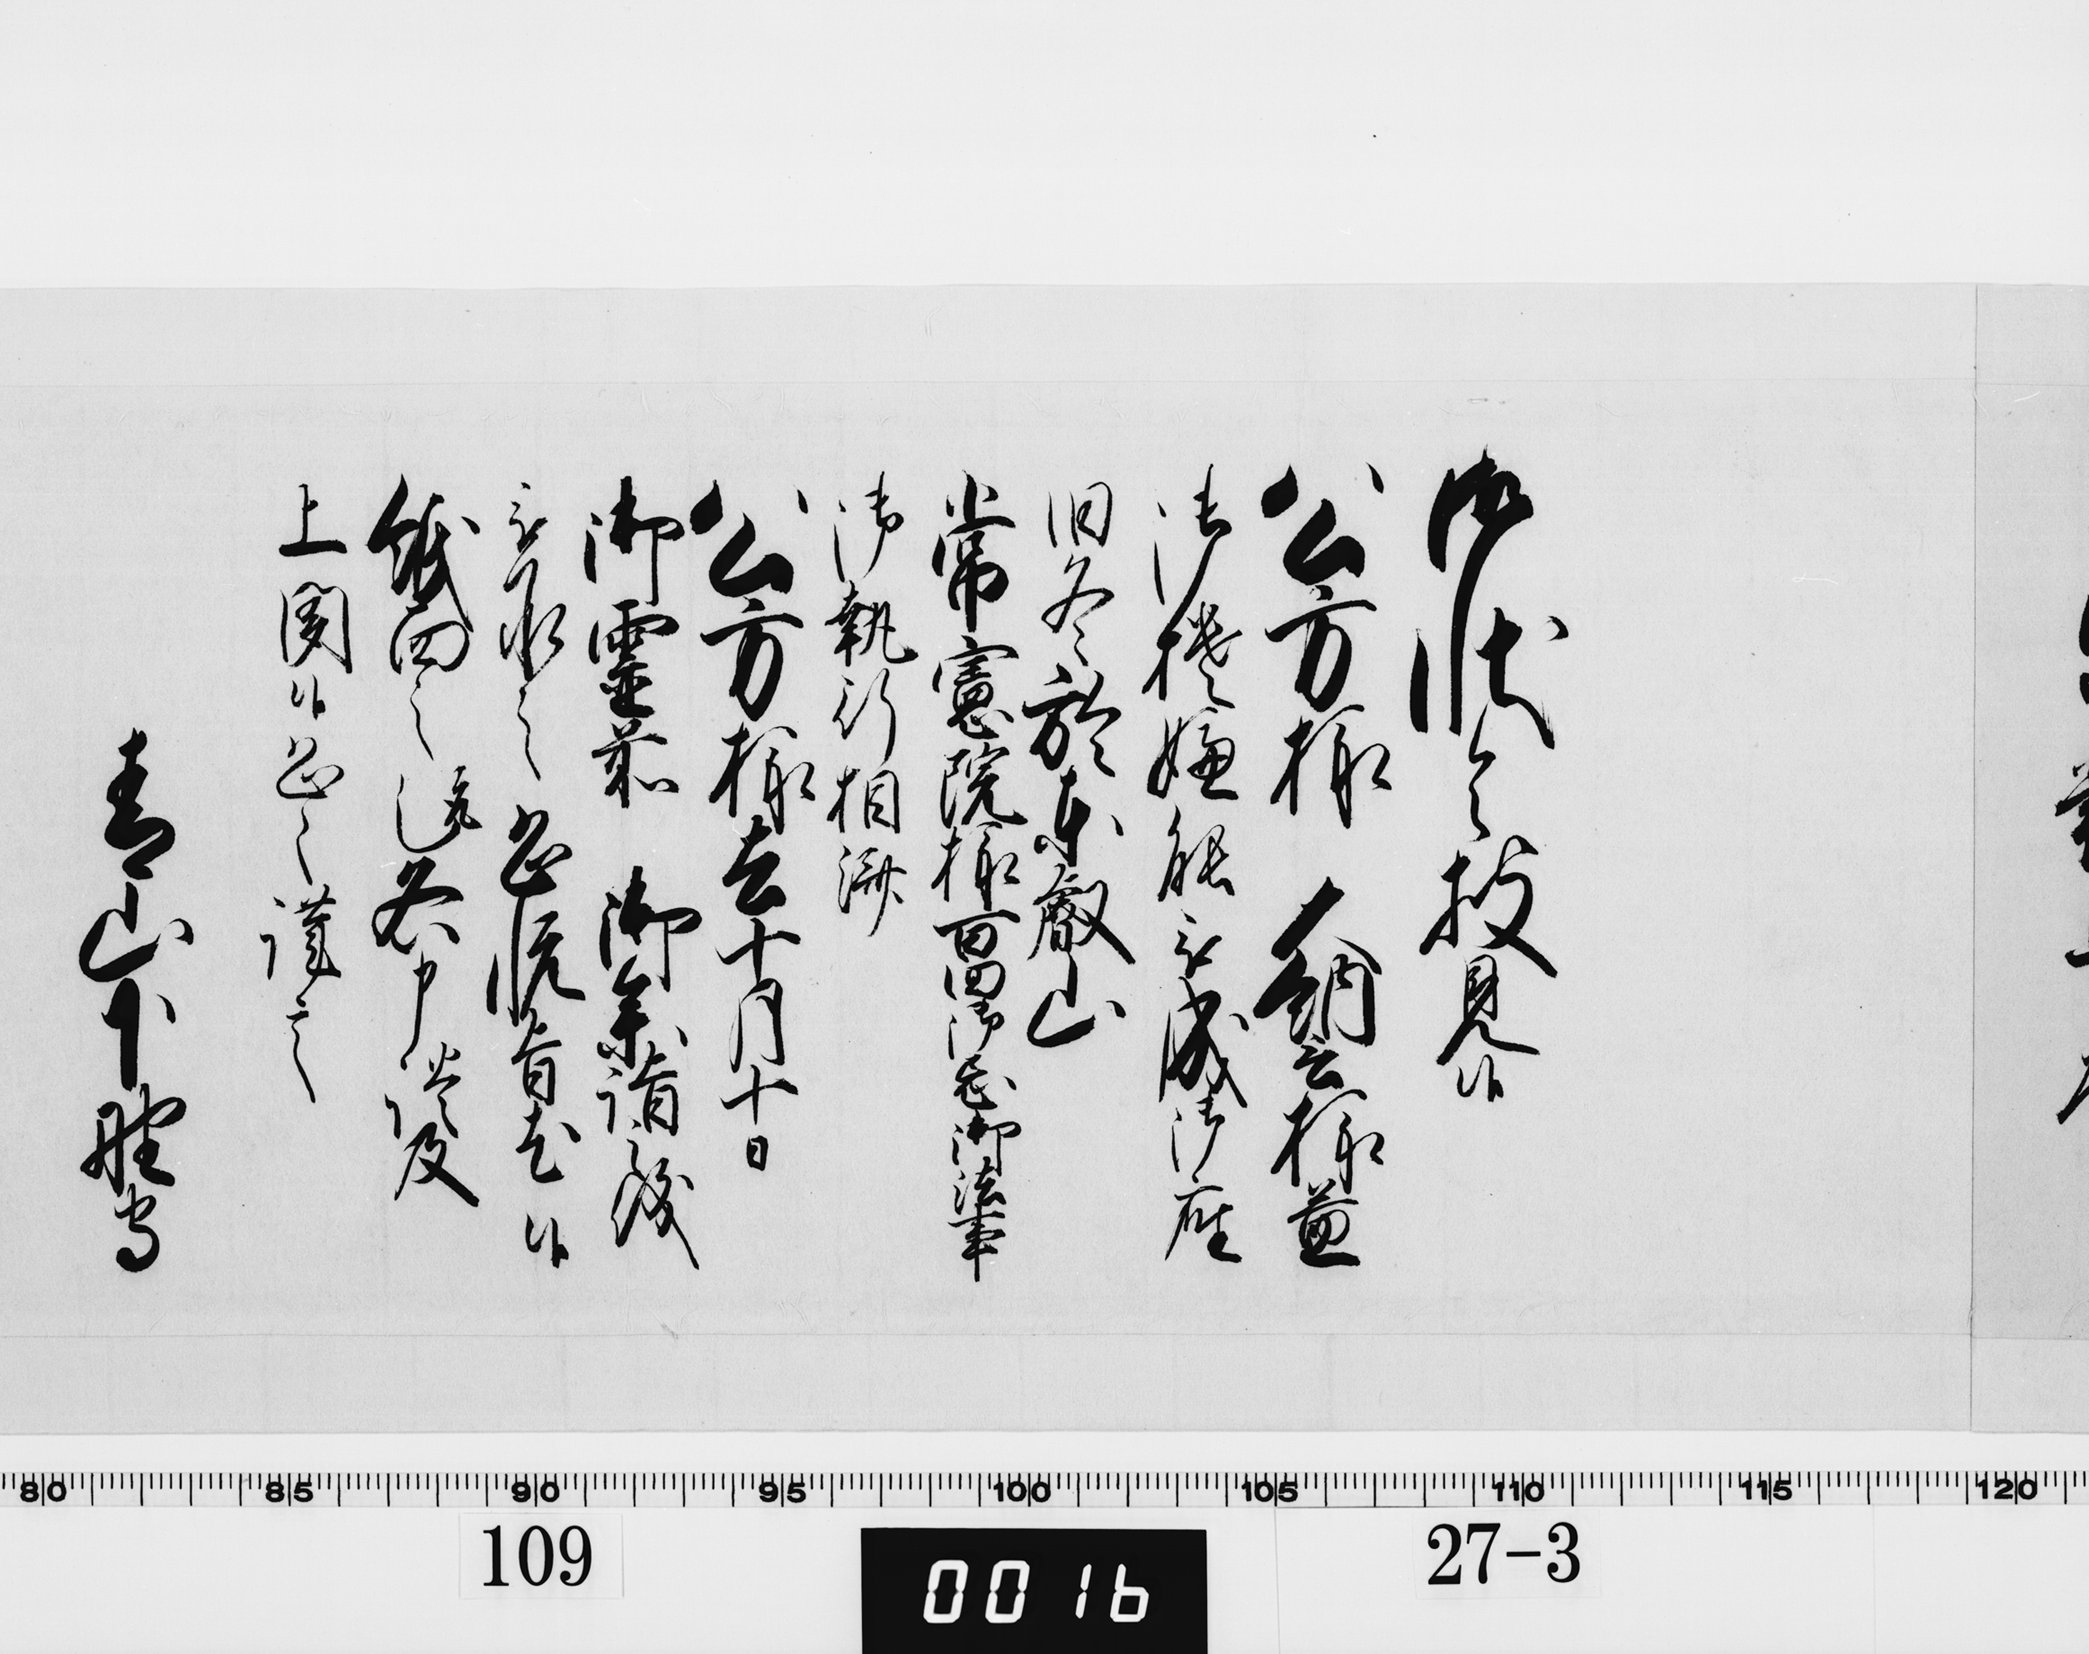 御状令披見候
公方様 大納言様益
御機嫌能被成御座
旧冬於東叡山
常憲院様百回御忌御法事
御執行相済
公方様去十月十日
御霊前 御参詣之後
被承之恐悦旨尤候
紙面之趣各申談及
上聞候恐々謹言
青山下野守
80 85 90 95 100 105 110 115 120
109
0016
27-3